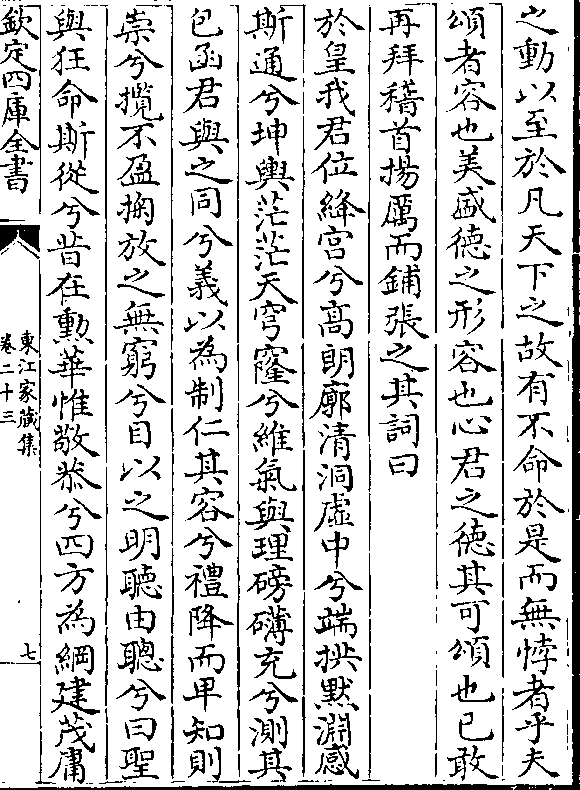 之動以至於凡天下之故有不命於是而無悖者乎夫
頌者容也美盛德之形容也心君之德其可頌也已敢
再拜稽首揚厲而鋪張之其詞曰
於皇我君位絳宫兮髙朗廓清洞虚中兮端拱黙淵感
斯通兮坤輿茫茫天穹窿兮維氣與理磅礴充兮測其
包函君與之同兮義以為制仁其容兮禮降而卑知則
崇兮攬不盈掬放之無窮兮目以之明聽由聰兮曰聖
與狂命斯從兮昔在勲華惟敬恭兮四方為綱建茂庸
欽定四庫全書
東江家藏集
卷二十三
七